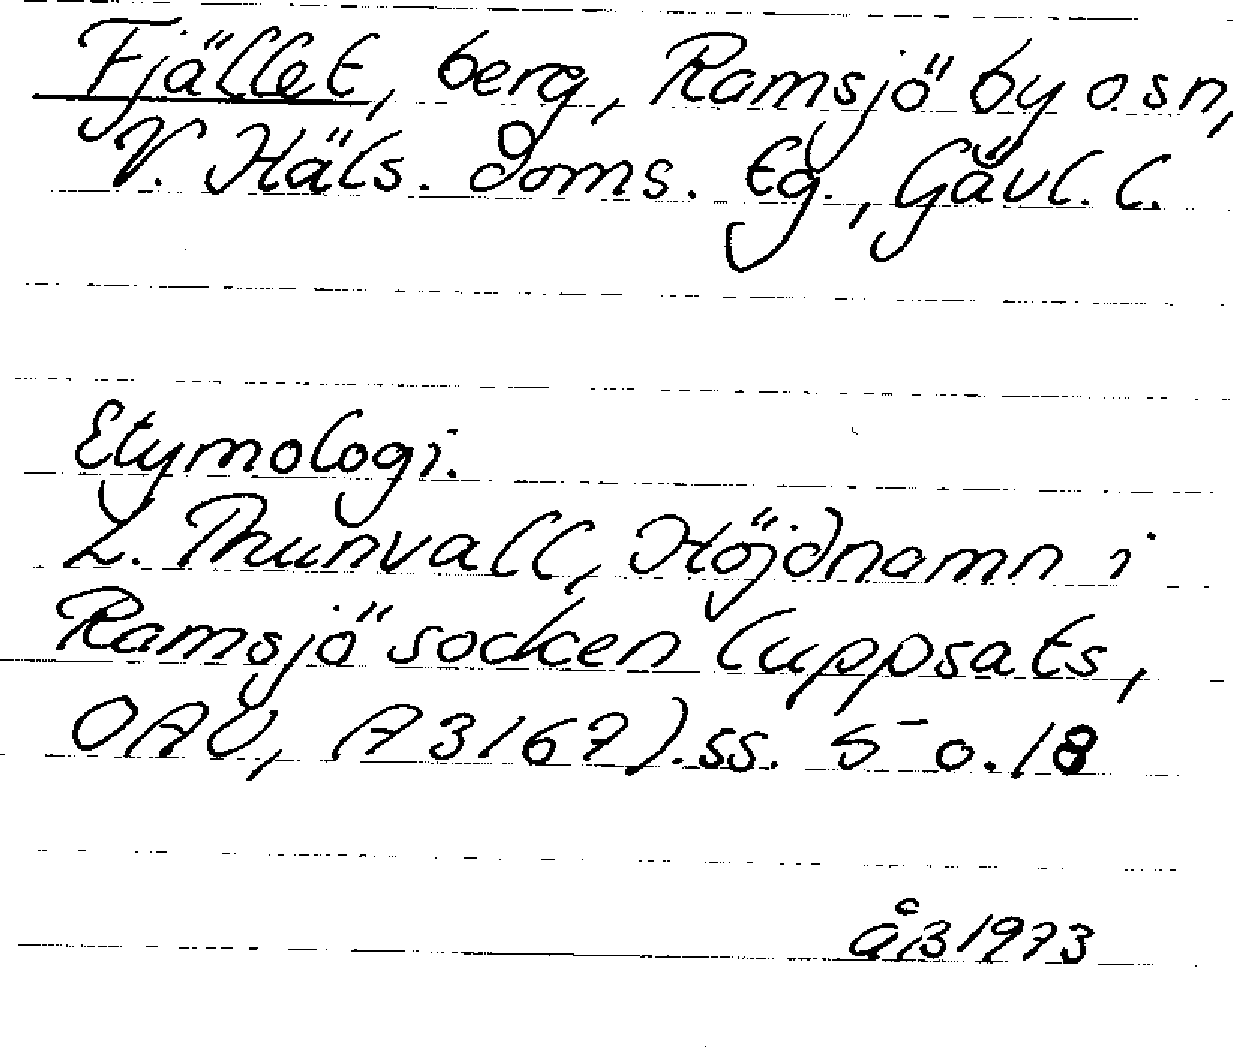 Fjället, berg, Ramsjö by o.sn,
V. Häls. doms. tg., Gävl. l.
Etymologi.
L. Thunvall, Höjdnamn i
Ramsjö socken (uppsats,
OAU, A3167). ss. 5 o. 18
ÅB 1973